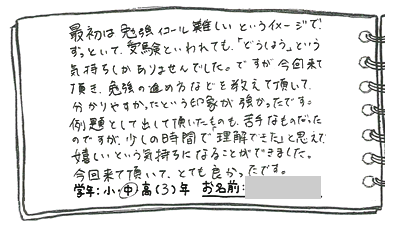 最初は勉強イコール難しいというイメージで、
ずっといて、受験といわれても、「どうしよう」という
気持ちしかありませんでした。ですが今回来て
頂き、勉強の進め方などを教えて頂して、
分かりやすかったという印象が強かったです。
例題として出して頂いたものも、苦手なものだった
のですが、少しの時間で「理解できた」と思えて
嬉しいという気持ちになることができました。
今回来て頂いて、とても良かったです。
学年:小・中 高(3)年 お名前: